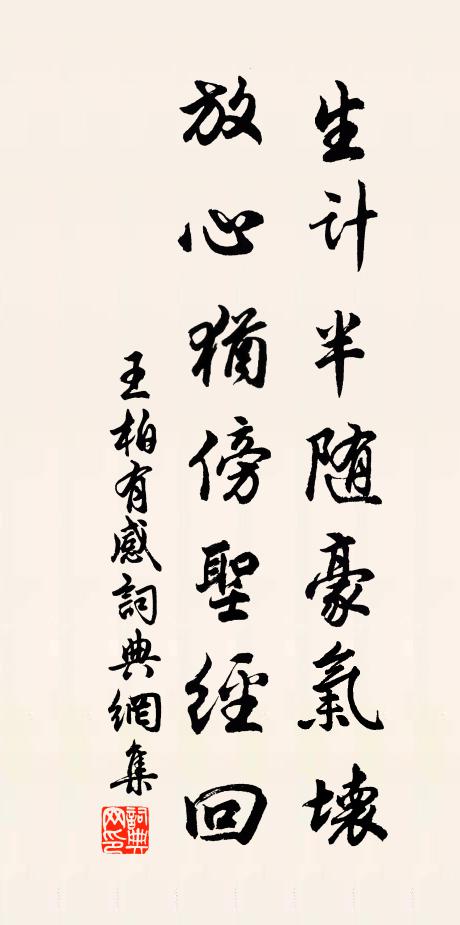 生计半随豪氣壊
放心猶傍聖經回
王柏有感詞典網集
詞典網印